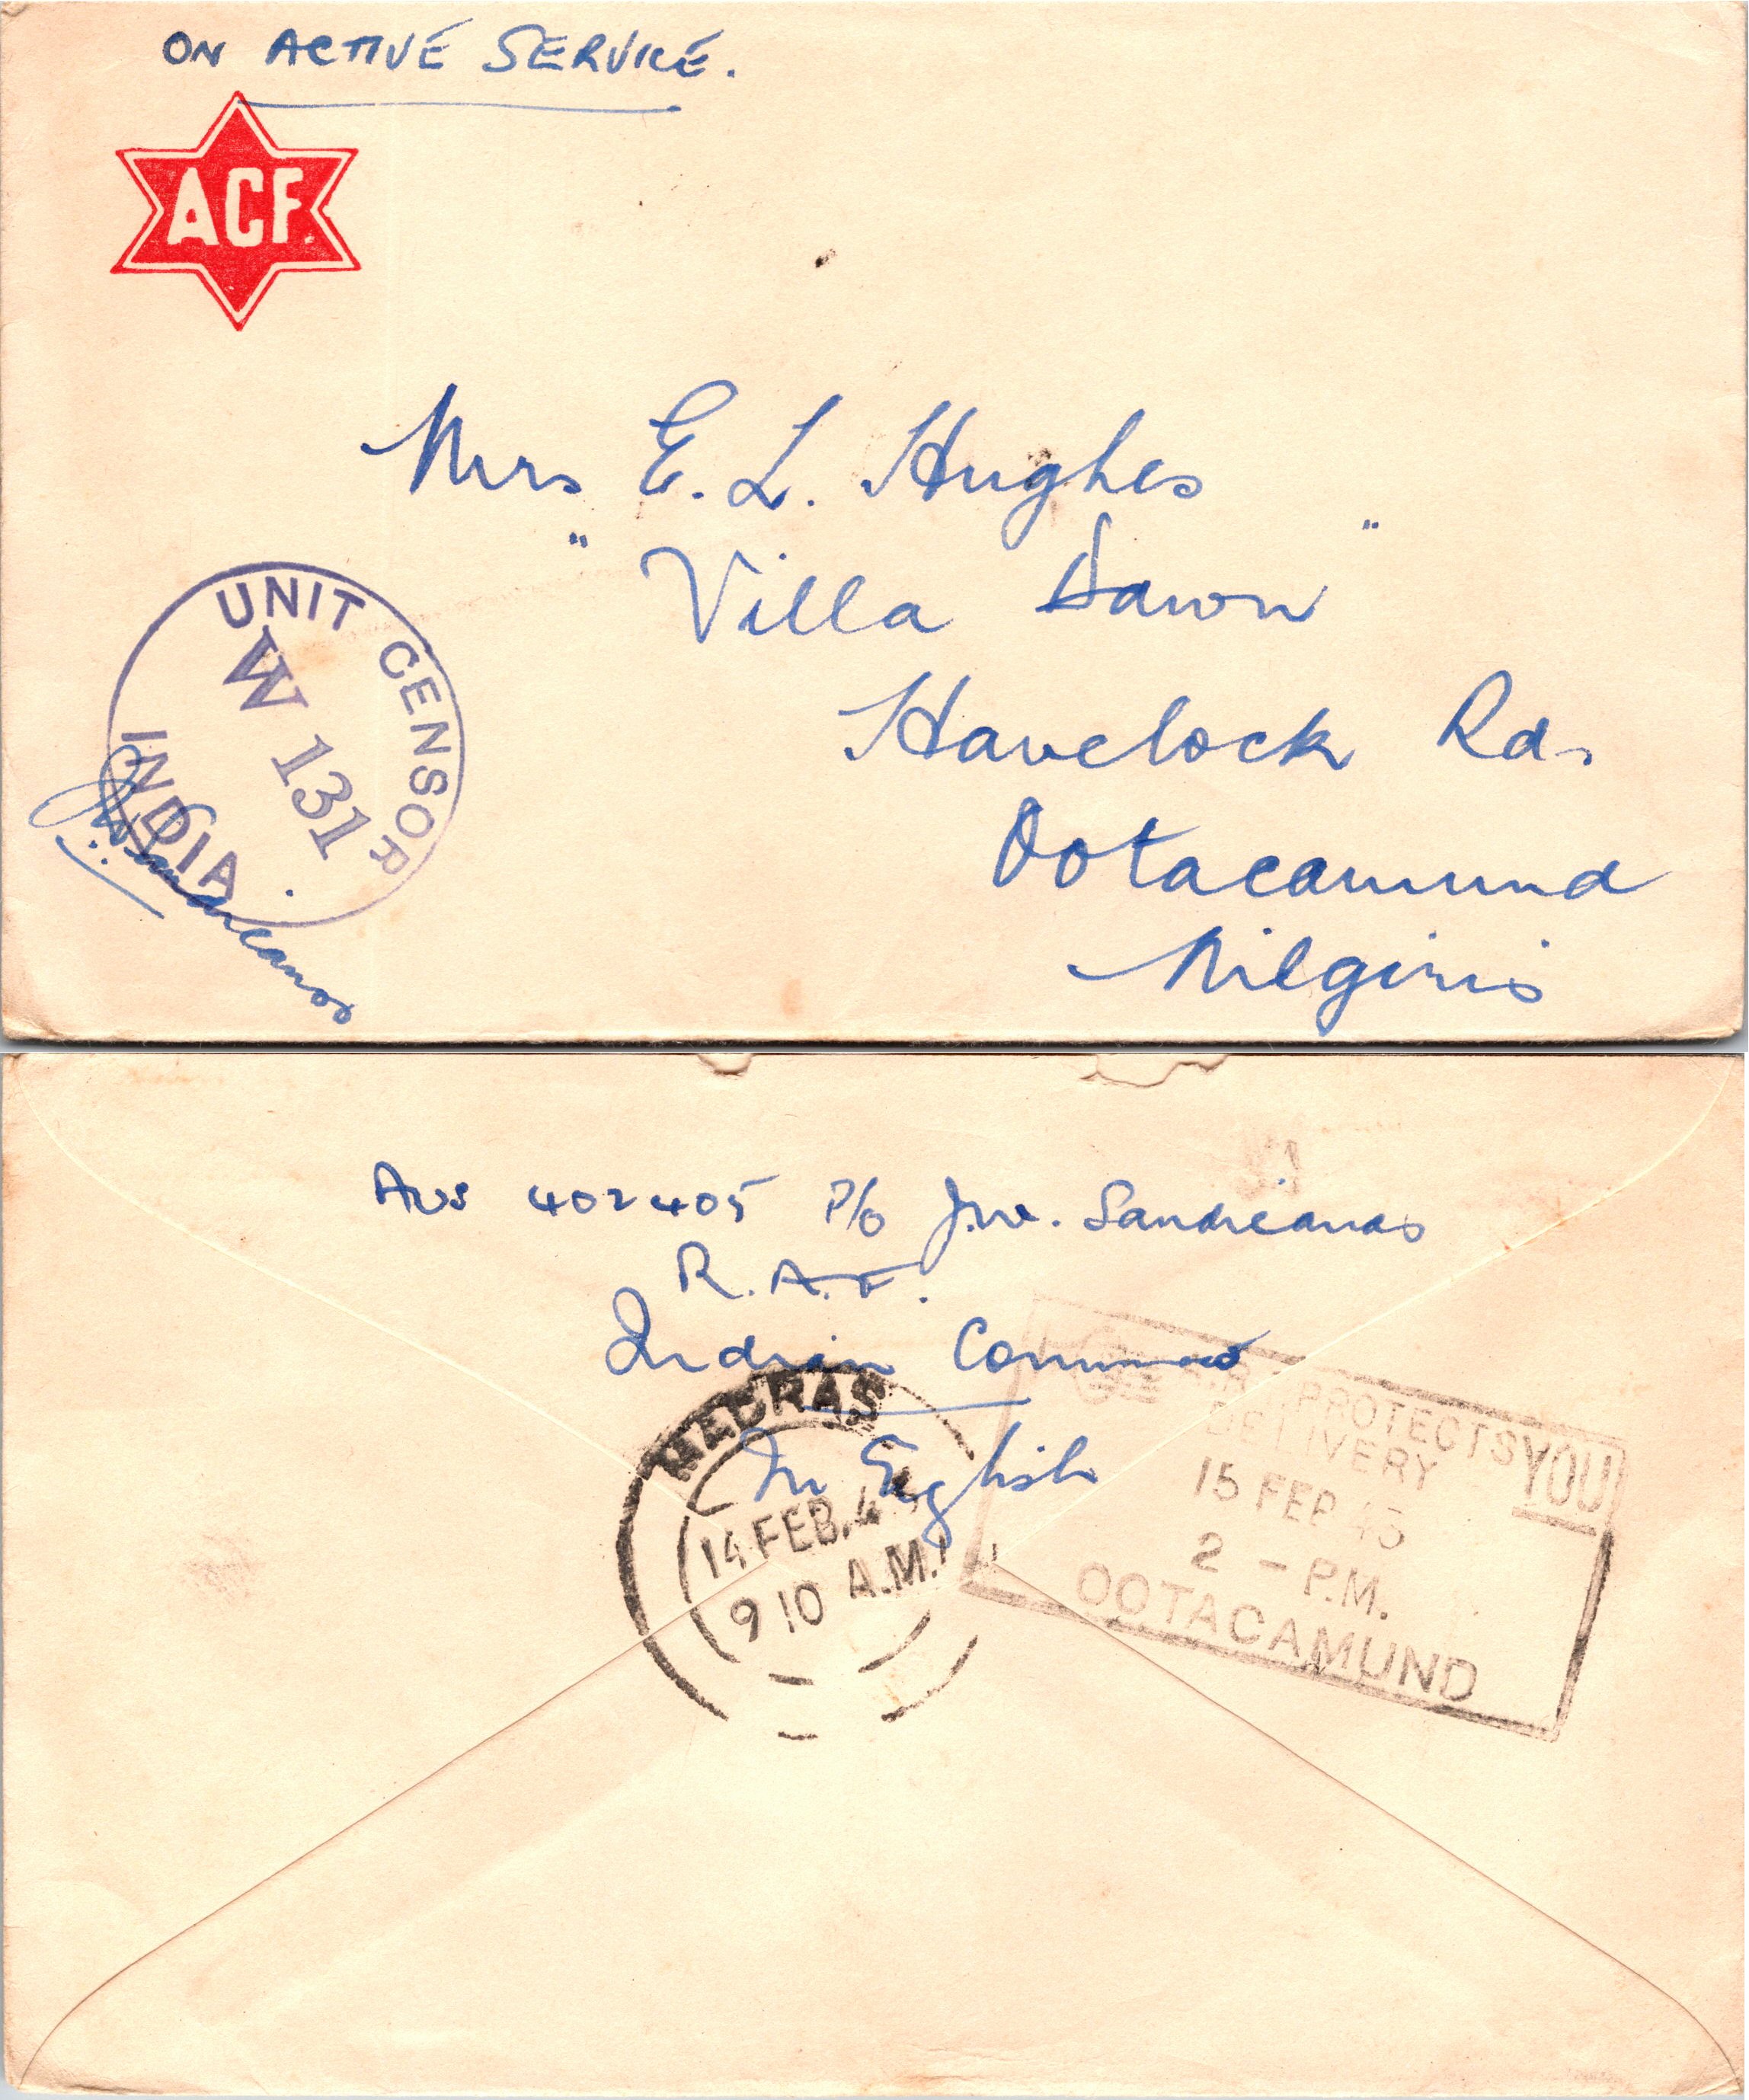 ON ACTIVE SERVICE.
ACF.
Mrs E. L. Hughes
"Villa Dawn"
Havelock Rd.
Ootacamund
Nilgiris
UNIT CENSOR
W 131
INDIA
Aus 402405 P/O J.W.
R.A.F.
Indian Command
In English
MADRAS
14 FEB. 4
9 10 A.M.
PROTECTS YOU
DELIVERY
15 FEB 43
2 - P.M.
OOTACAMUND